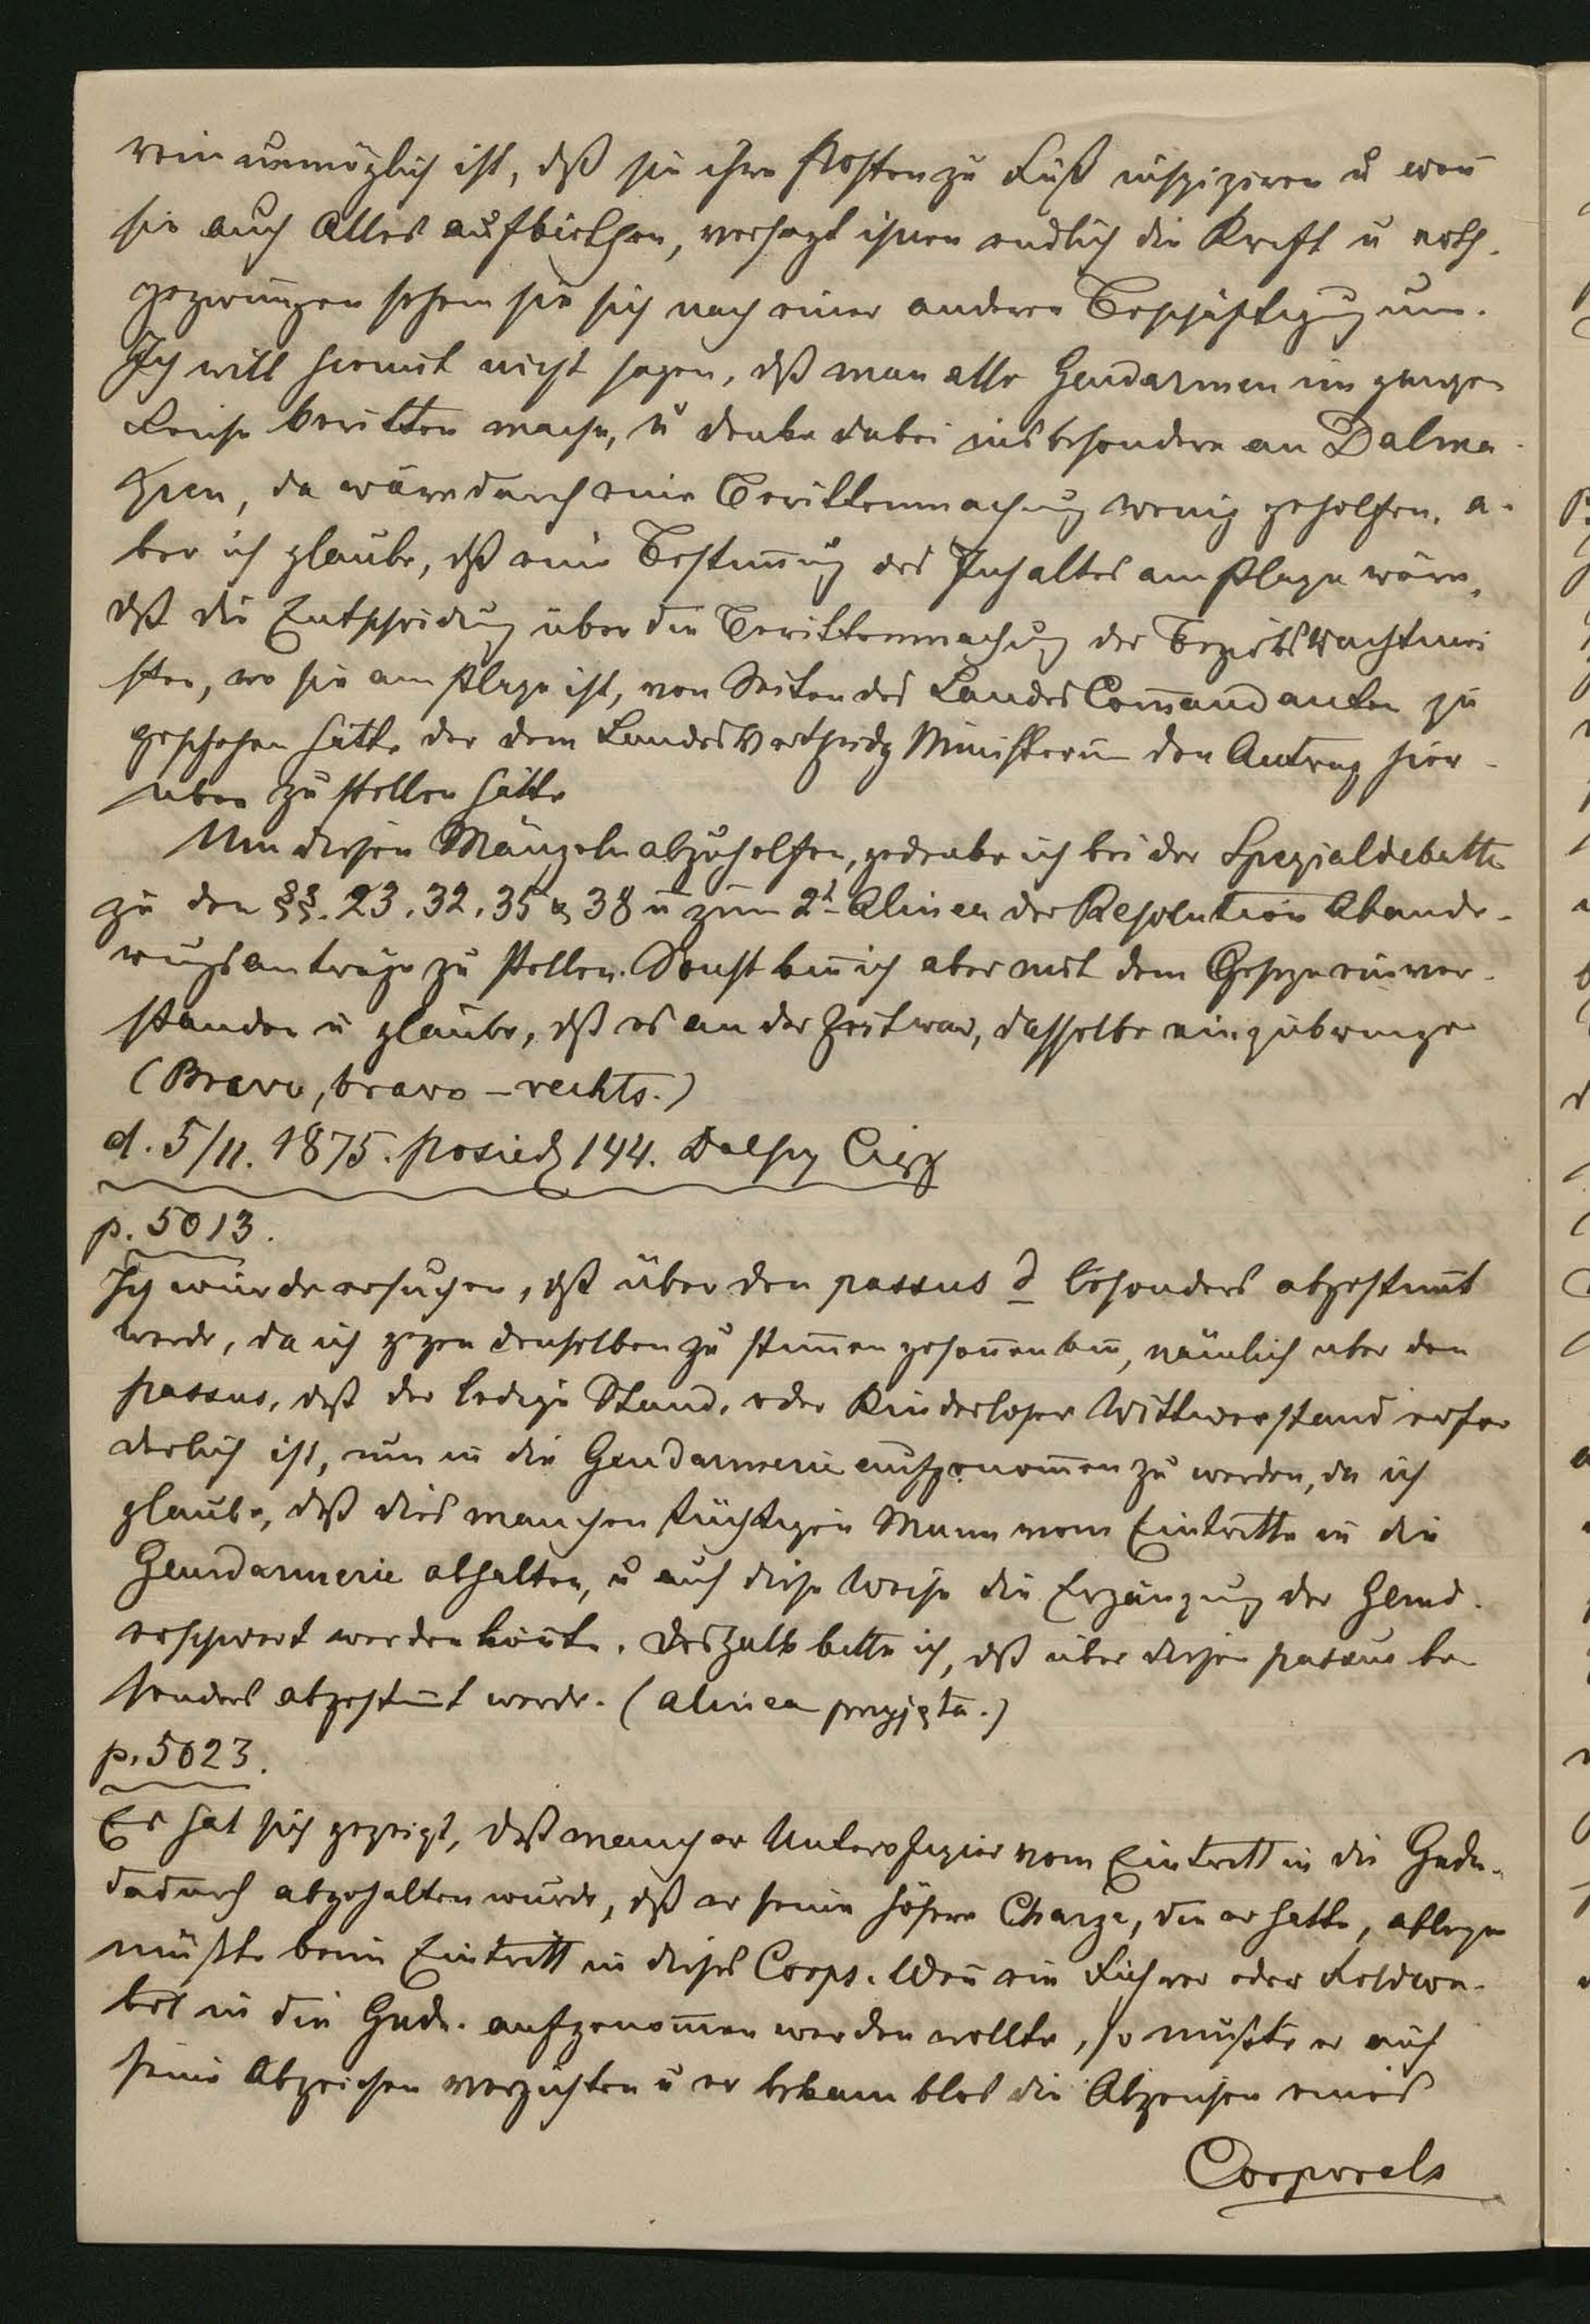 rein unmöglich ist, dß sie ihre Posten zu Fuß inspiziren u weñ
sie auch Alles aufbiethen, versagt ihnen endlich die Kraft u noth-
gezwungen sehen sie sich nach einer anderen Beschäftigug um.
Ich will hiemit nicht sagen, dß man alle Gendarmen im ganzen
Reiche beritten mache, u denke dabei insbesondere an Dalma-
zien, da wäre durch eine Berittenmachung wenig geholfen. a-
ber ich glaube, dß eine Bestim̄ug des Inhaltes am Plaze wäre,
dß die Entscheidug über die Berittenmachug der Bezirkswachtmei
ster, wo sie am Plaze ist, von Seiten des Landes Com̄andanten zu
geschehen hätte der dem LandesVertheidg Ministerium den Antrag hier-
über zu stellen hätte
Um diesen Mängeln abzuhelfen, gedenke ich bei der Spezialdebatte
zu den §§. 23. 32. 35 & 38 u zum 2t Alinea der Resolution Abände-
rugsanträge zu stellen. Sonst biñ ich aber mit dem Geseze einver-
standen u glaube, dß es an der Zeit war, dasselbe einzubringen
(Bravo, bravo – rechts.)
d. 5/11. 1875. posiedz 144. Dalszy Ciąg
p. 5013.
Ich würde ersuchen, dß über den passus d besonders abgestim̄t
werde, da ich gegen denselben zu stim̄en gesoñen biñ, nämlich über den
passus, daß der ledige Stand, oder Kinderloser Wittwerstand erfor
derlich ist, um in die Gendarmerie aufgenom̄en zu werden, da ich
glaube, daß dies manchen tüchtigen Mann vom Eintritte in die
Gendarmerie abhalten, u auf diese Weise die Ergänzug der Gend.
erschwert werden köñte. Deshalb bitte ich, dß über diesen passus be-
sonders abgestim̄t werde. (alinea przyjęta.)
p. 5023.
Es hat sich gezeigt, daß mancher Unteroffizier vom Eintritt in die Gnd.
dadurch abgehalten wurde, dß er seine höhere Charge, die er hatte, ablegen
mußte beim Eintritt in dieses Corps. Weñ ein Führer oder Feldwe-
bel in die Gnd. aufgenom̄en werden wollte, so mußte er auf
seine Abzeichen verzichten u er bekam blos die Abzeichen eines
Corporals